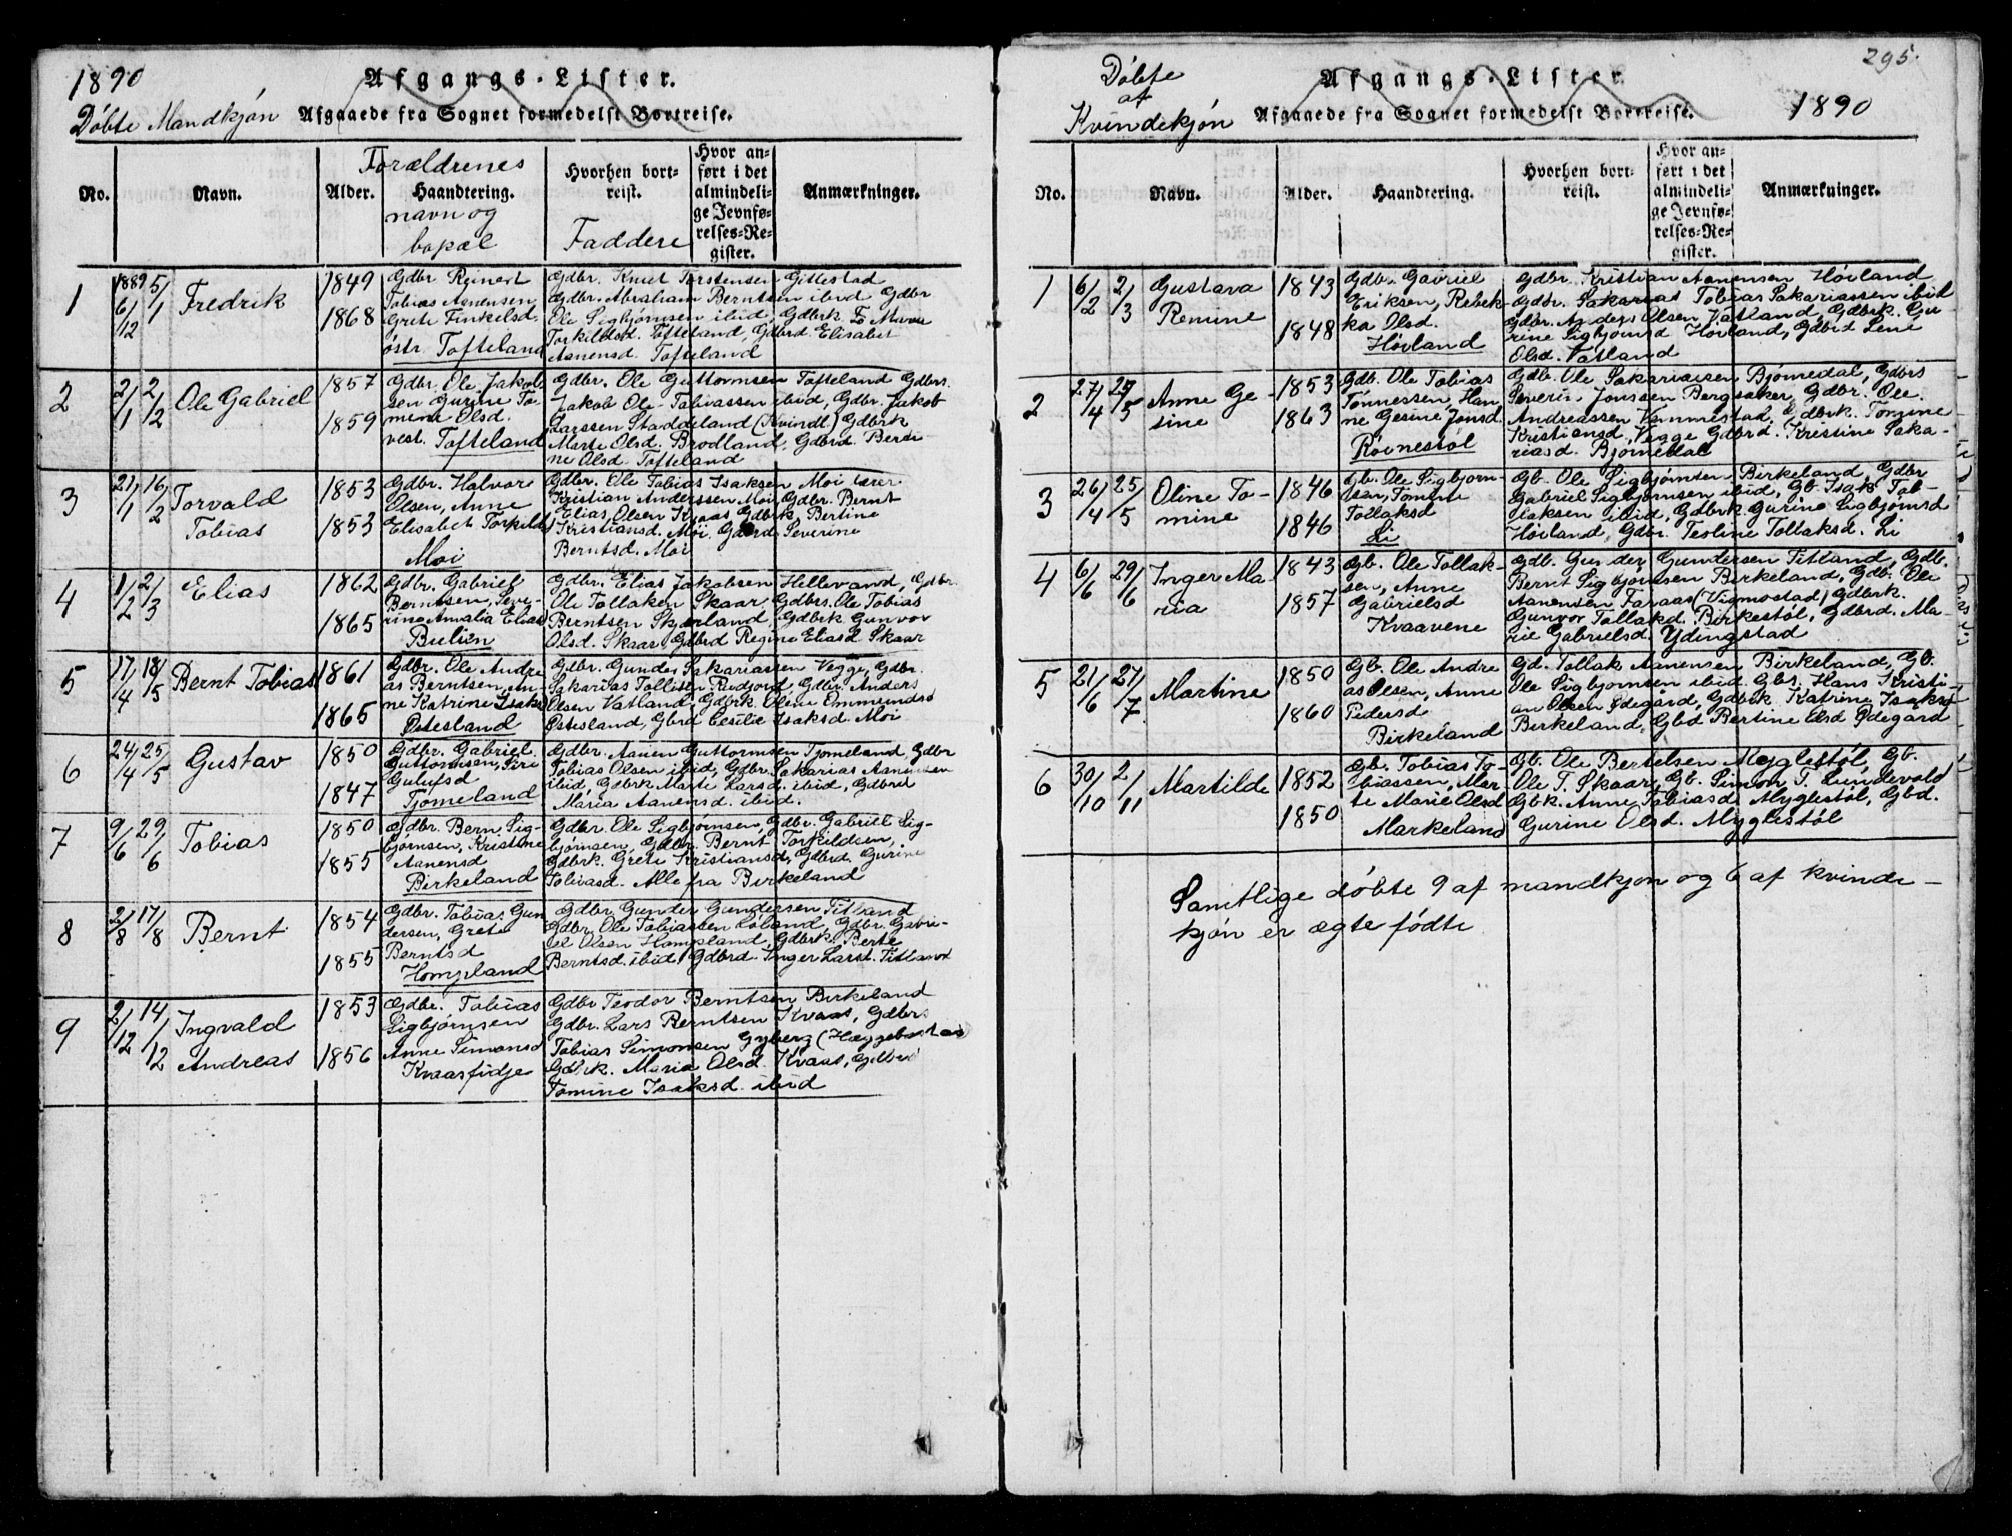 1890
Afgangs-Lister.
Döbte Mandkjön Afgaaede fra Sognet formedelst Bortreise.
No.
Navn.
Alder.
Forældrenes
Haandtering.
navn og
bopæl
Hvorhen bort-
reist.
Faddere
Hvor an-
ført i det
almindeli-
ge Jevnfø-
relses-Re-
gister.
Anmærkninger.
1
1889 5/1
6/12
Fredrik
1849
1868
Gdbr Reinert
Tobias Aanensen
Grete Finkelsd.
östr. Tofteland
Gdbr. Knut Torstensen Gittestad
Gdbr. Abraham Berntsen ibid Gdbr
Ole Sigbjörnsen ibid, Gdbrk
Torkildsd. Tofteland, Gdbrd Elisabet
Aanensd. Tofteland
2
2/1 2/2
Ole Gabriel
1857
1859
Gdbr. Ole Jakob-
sen Gurine To-
mene Olsd.
vest. Tofteland
Gdbr. Ole Guttormsen Tofteland Gdbrs.
Jakob Ole Tobiassen ibid, Gdbr. Jakob
Larssen Skaddeland (Kvindl.) Gdbrk
Marte Olsd. Brodland, Gdbrd Berte
ne Olsd. Tofteland
3
21/1 16/2
Torvald
Tobias
1853
1853
Gdbr. Halvor
Olsen, Anne
Elisabet Torkilds
Moi
Gdbr. Ole Tobias Isaksen Moi
Kristian Anderssen Moi, Gdbr. Bernt
Elias Olsen Kvaas Gdbrk Bertine
Kristiansd. Moi. Gdbrd. Severine
Berntsd. Moi
4
1/2 2/3
Elias
1862
1865
Gdbr. Gabriel
Berntsen, Seve-
rine Amalia Elias
Bulien
Gdbr. Elias Jakobsen Hellevand, Gdbr.
Ole Tollaksen Skaar Gdbrs. Ole Tobias
Berntsen Skjærland, Gdbrk Gunvor
Olsd. Skaar, Gdbrd Regine Eliasd Skaar
5
17/4 18/5
Bernt Tobias
1861
1865
Gdbr. Ole Andre
as Berntsen, An-
ne Katrine Isaks
Östesland
Gdbr. Gunder Sakariassen Vegge, Gdbr.
Sakarias Tollisen Rudjord, Gdbr. Anders
Olsen Vatland, Gdbrk. Oline Ommundsd
Östesland, Gbrd Cecilie Isaksd. Moi
6
24/4 25/5
Gustav
1850
1847
Gdbr. Gabriel
Guttormsen, Siri
Gulufsd
Tjomeland
Gdbr. Aanen Guttormsen Tjomeland, Gdbr
Tobias Olsen ibid, Gdbr. Sakarias Aanensen
ibid, Gdbrk Marte Larsd. ibid, Gdbrd
Maria Aanensd. ibid.
7
9/6 29/6
Tobias
1850
1855
Gdbr. Bern. Sig-
björnsen, Kristine
Aanensd
Birkeland
Gdbr. Ole Sigbjörnsen, Gdbr. Gabriel Sig-
björnsen, Gdbr. Bernt Torkildsen,
Gdbrk. Grete Kristiansd, Gdbrd. Gurine
Tobiasd. Alle fra Birkeland
8
2/8 17/8
Bernt
1854
1855
Gdbr. Tobias Gun
dersen, Grete
Berntsd
Hompland
Gdbr Gunder Gundersen Titland
Gdbr Ole Tobiassen Löland, Gdbr. Gabri-
el Olsen Hompland, Gdbrk Berte
Berntsd. ibid, Gdbrd. Inger Larsd. Titland
9
2/12 14/12
Ingvald
Andreas
1853
1856
Gdbr. Tobias
Sigbjörnsen
Anne Simonsd
Kvaasfidje
Gdbr Teodor Berntsen Birkeland
Gdbr. Lars Berntsen Kvaas, Gdbrs
Tobias Simonsen Gyberg (Hæggebostad
Gdbrk. Maria Olsd. Kvaas, Gdbrd
Tomine Isaksd. ibid
295.
Döbte
af
Kvindekjön
Afgangs-Lister.
Afgaaede fra Sognet formedelst Bortreise.
1890
No.
Navn.
Alder.
Haandtering.
Hvorhen bort-
reist.
Hvor an-
ført i det
almindeli-
ge Jevnfø-
relses-Re-
gister.
Anmærkninger.
1
6/2 2/3
Gustava
Remine
1843
1848
Gdb. Gabriel
Eriksen, Rebek-
ka Olsd.
Höiland
Gdbr. Kristian Aanensen Höiland
Gdbr. Sakarias Tobias Sakariassen ibid
Gdbr. Anders Olsen Vatland, Gdbrk. Gu-
rine Sigbjörnsd Höiland, Gdbrd Lene
Olsd. Vatland
2
27/4 27/5
Anne Ge-
sine
1853
1863
Gdb. Ole Tobias
Tönnessen, Han
ne Gesine Jonsd.
Röinestöl
Gdb. Ole Sakariassen Björnedal, Gdbrs
Severin Jonssen Bergsaker, Gdbr. Ole
Andreassen Vemmestad, Gdbrk. Tomine
Kristiansd, Vegge Gdbrd. Kristine Saka-
riasd. Björnedal
3
26/4 25/5
Oline To-
mine
1846
1846
Gb. Ole Sigbjörn-
sen, Tomine
Tollaksd
Li
Gb. Ole Sigbjörnsen Birkeland, Gdbr
Gabriel Sigbjörnsen ibid, Gb. Isak Tol-
laksen ibid, Gdbrk Gurine Sigbjörnsd
Höiland, Gdbr. Teoline Tollaksd. Li
4
6/6 29/6
Inger Ma-
ria
1843
1857
Gb. Ole Tollak-
sen, Anne
Gabrielsd
Kvaavene
Gdb. Gunder Gundersen Titland, Gdb.
Bernt Sigbjörnsen Birkeland, Gdb. Ole
Aanensen Faraas (Vigmostad) Gdbrk.
Gunvor Tollaksd. Birkestöl, Gdbrd. Ma-
rie Gabrielsd. Ydingstad
5
21/6 27/7
Martine
1850
1860
Gb. Ole Andre
as Olsen, Anne
Pedersd
Birkeland
Gd. Tollak Aanensen Birkeland, Gb.
Ole Sigbjörnsen ibid. Gbs. Hans Kristi-
an Olsen Ödegård, Gdbrk Katrine Isaksd
Birkeland, Gbd Bertine Elsd Ödegård
6
30/10 2/11
Martilde
1852
1850
Gb. Tobias To-
biassen, Mar-
te Marie Olsd
Markeland
Gb. Ole Bertelsen Myglestöl, Gb.
Ole T. Skaar, Gb. Simon T. Lindevold
Gbk. Anne Tobiasd. Myglestöl, Gbd.
Gurine Olsd. Myglestöl
Samtlige döbte 9 af mandkjön og 6 af kvinde-
kjön er ægte födte